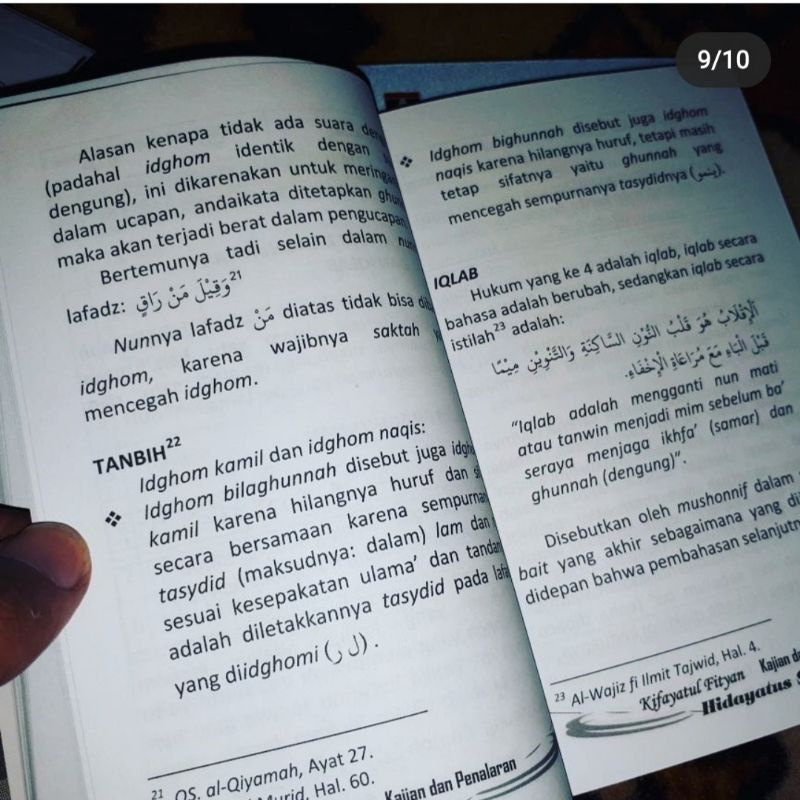 9/10
Alasan kenapa tidak ada suara
(padahal idghom identik dengan
dengung), ini dikarenakan untuk
dalam ucapan, andaikata ditetapkan
maka akan terjadi berat dalam
Bertemunya tadi selain dalam
lafadz: وَقِيْلَ مَنْ رَاقٍ 21
Nunnya lafadz مَنْ diatas tidak bisa
idghom, karena wajibnya saktah
mencegah idghom.
TANBIH22
Idghom kamil dan idghom naqis:
❖ Idghom bilaghunnah disebut juga
kamil karena hilangnya huruf dan
secara bersamaan karena
tasydid (maksudnya: dalam) lam dan
sesuai kesepakatan ulama' dan
adalah diletakkannya tasydid pada
yang diidghomi (ل ر) .
21 QS. al-Qiyamah, Ayat 27.
Murid, Hal. 60.
Kajian dan Penalaran
❖ Idghom bighunnah disebut juga idghom
naqis karena hilangnya huruf, tetapi masih
tetap sifatnya yaitu ghunnah yang
mencegah sempurnanya tasydidnya
IQLAB
Hukum yang ke 4 adalah iqlab, iqlab secara
bahasa adalah berubah, sedangkan iqlab secara
istilah23 adalah:
اَلْإِقْلَابُ هُوَ قَلْبُ النُّوْنِ السَّاكِنَةِ وَالتَّنْوِيْنِ مِيْمًا
قَبْلَ الْبَاءِ مَعَ مُرَاعَاةِ الْإِخْفَاءِ.
"Iqlab adalah mengganti nun mati
atau tanwin menjadi mim sebelum ba'
seraya menjaga ikhfa' (samar) dan
ghunnah (dengung)".
Disebutkan oleh mushonnif dalam
bait yang akhir sebagaimana yang
didepan bahwa pembahasan
23 Al-Wajiz fi Ilmit Tajwid, Hal. 4.
Kifayatul Fityan Kajian
Hidayatus